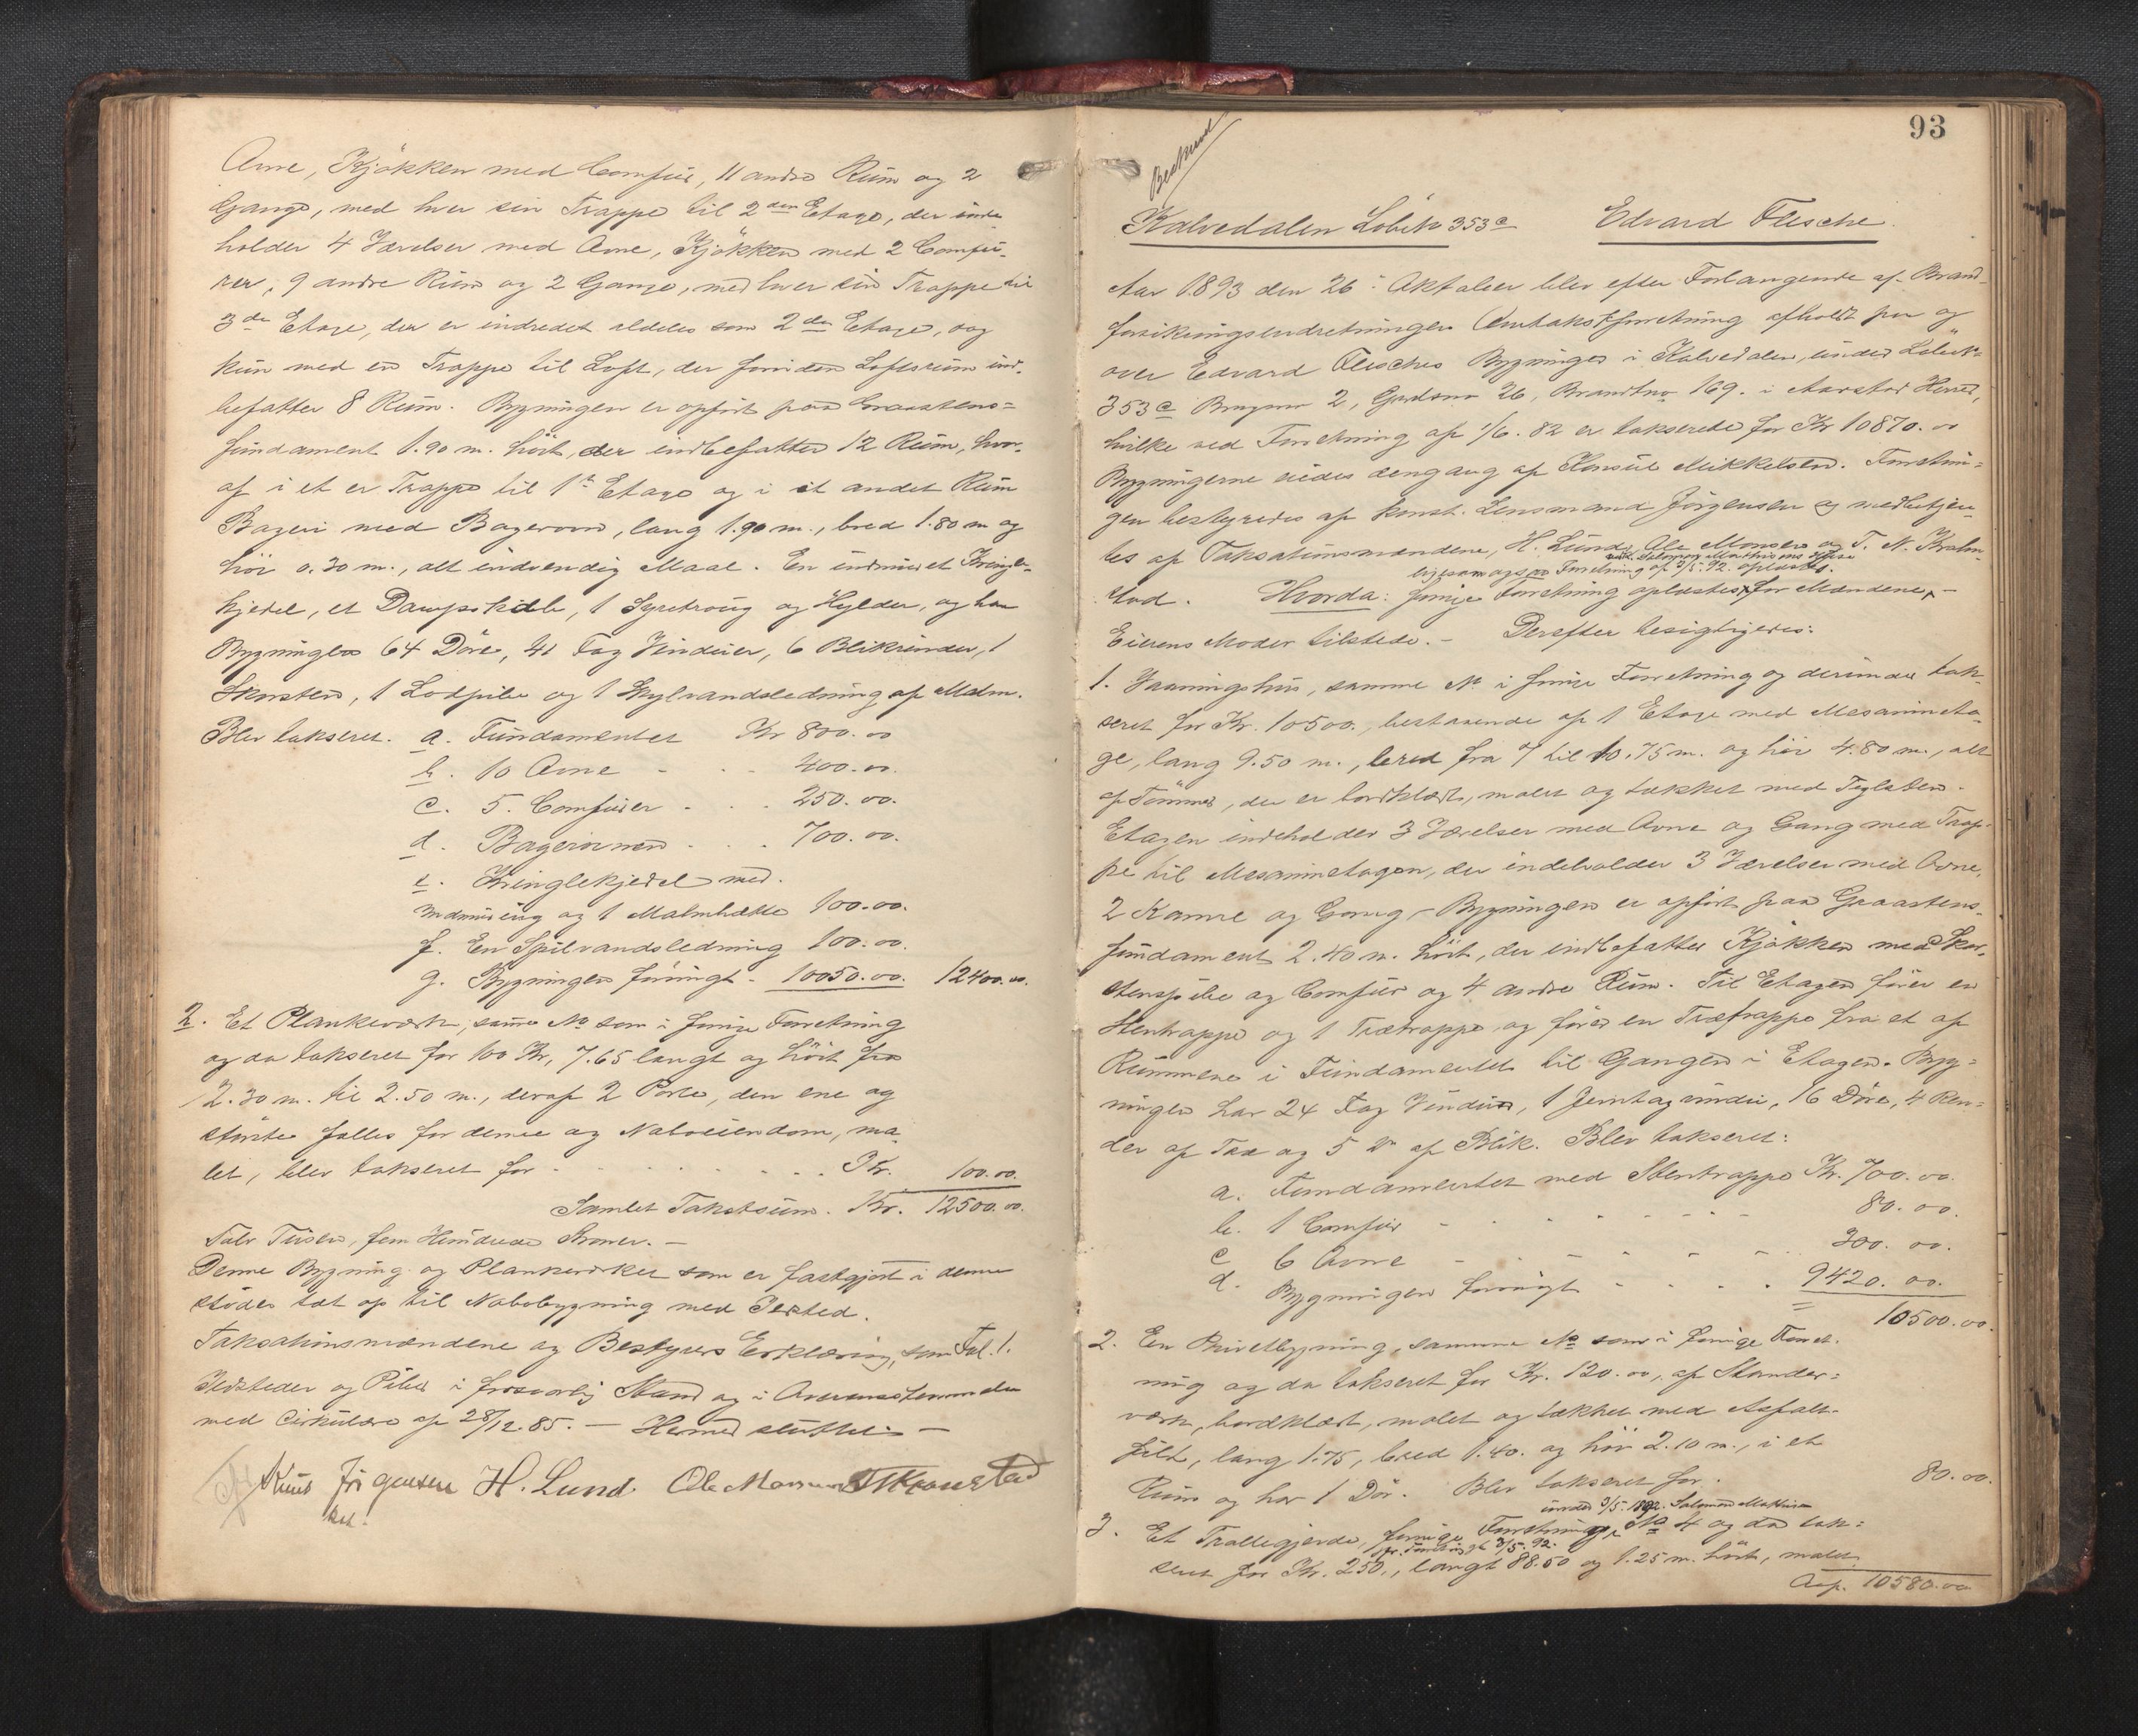 Ovne, Kjøkken med Comfur, 11 andre Rum og 2
Gange, med hver sin Trappe til 2den Etage, der inde
holder 4 Værelser med Ovne, Kjøkken med 2 Comfu-
rer, 9 andre Rum og 2 Gange, med hver sin Trappe til
3die Etage, der er indredet aldeles som 2den Etage, dog
kun med en Trappe til Loft, der foruden Loftsrum ind-
befatter 8 Rum. Bygningen er opført paa Graastens-
fundament 1.90 m. høit, der indbefatter 12 Rum, hvor-
af i et er Trappe til 1ste Etage og i et andet Rum
Bageri med Bagerovn, lang 1.90 m., bred 1.80 m og
høi 0.30 m., alt indvendig Maal. En indmuret Kringle-
kjedel, et Dampskab, 1 Syretroug og Hylder, og har
Bygningen 64 Døre, 41 Fag Vinduer, 6 Blikrender, 1
Skorsten, 1 Lodpibe og 1 Skylvandsledning af Malm.
Blev takseret. a. Fundamentet Kr 800.00
b. 10 Ovne - - - 400.00.
c. 5. Comfurer - - . 250.00.
d. Bagerovnen - . . 700.00.
e. Kringlekjedel med
Indmuring og 1 Malmhætte 100.00.
f. En Spilvandsledning 100.00.
g. Bygningen forøvrigt - 10050.00. 12400.00.
2. Et Plankeværk, samme No som i forrige Forretning
og da takseret for 100 Kr, 7.65 langt og høit fra
2.30 m. til 2.50 m., deraf 2 Porte, den ene og
største fælles for denne og Naboeiendom, ma-
let, blev takseret for - - - - - - - - Kr. 100.00.
Samlet Takstsum. Kr. 12500.00.
Tolv Tusen, fem Hundrede Kroner. -
Denne Bygning og Plankeværket som er fastgjort i denne
stødes tæt op til Nabobygning med Ildsted.
Taksationsmændene og Bestyrers Erklæring, som Fol. 1.
Ildsteder og Piber i forsvarlig Stand og i Overensstemmelse
med Cirkulære af 28/12.85. - Hermed sluttet. -
Knud Jørgensen H. Lund. Ole Monsen T N Kronstad
kst.
93
Kalvedalen Løbeno 353c Edvard Flesche.
Aar 1893 den 26. Oktober blev efter Forlangende af Brand-
forsikringsindretningen Omtakstforretning afholdt paa og
over Edvard Flesches Bygninger i Kalvedalen, under Løbeno
353c Brugsno 2, Gardsno 26, Brandtno 169. i Aarstad Herred,
hvilke ved Forretning af 1/6.82 er takserede for Kr 10870.00
Bygningerne eiedes dengang af Konsul Mikkelsen. Forretnin-
gen bestyredes af konst. Lensmand Jørgensen og medbetjen-
tes af Taksationsmændene, H. Lund, Ole Monsen og T. N. Kron-
ligesom ogsaa Forretning af 3/5.92. oplæstes.
stad. Hvorda: forrige Forretning oplæstes for Mændene. -
Eierens Moder tilstede. - Derefter besigtigedes:
1. Vaaningshus, samme No i forrige Forretning og derunder tak-
seret for Kr. 10500., bestaaende af 1 Etage med Mesanineta-
ge, lang 9.50 m., bred fra 7 til 10.75 m. og høi 4.80 m., alt
af Tømmer, der er bordklædt, malet og tækket med Teglsten.
Etagen indeholder 3 Værelser med Ovne og Gang med Trap-
pe til Mesaninetagen, der indeholder 3 Værelser med Ovne,
2 Kamre og Gang - Bygningen er opført paa Graastens-
fundament 2.40 m. høit, der indbefatter Kjøkken med Skor-
stenspibe og Comfur og 4 andre Rum. Til Etagen fører en
Stentrappe og 1 Trætrappe og fører en Trætrappe fra et af
Rummene i Fundamentet til Gangen i Etagen. Byg-
ningen har 24 Fag Vinduer, 1 Jerntagvindu, 16 Døre, 4 Ren-
der af Træ og 5 do af Blik. Blev takseret:
a. Fundamentet med Stentrappe Kr. 700.00.
b. 1 Comfur - - - - - - - 80.00.
c 6 Ovne - - - - - - 300.00.
d. Bygningen forøvrigt - - - - . 9420.00.
10500.00.
2. En Privetbygning, samme No som i forrige Forret-
ning og da takseret for Kr. 120.00, af Stander-
værk, bordklædt, malet og tækket med Asfalt-
filt, lang 1.75, bred 1.40. og høi 2.10 m., i et
Rum og har 1 Dør. Blev takseret for. 80.00.
3. Et Trallegjerde, forrige Forretnings No 4 og da tak-
seret for Kr. 250., langt 88.50 og 1.25 m. høit, malet.
10580.00